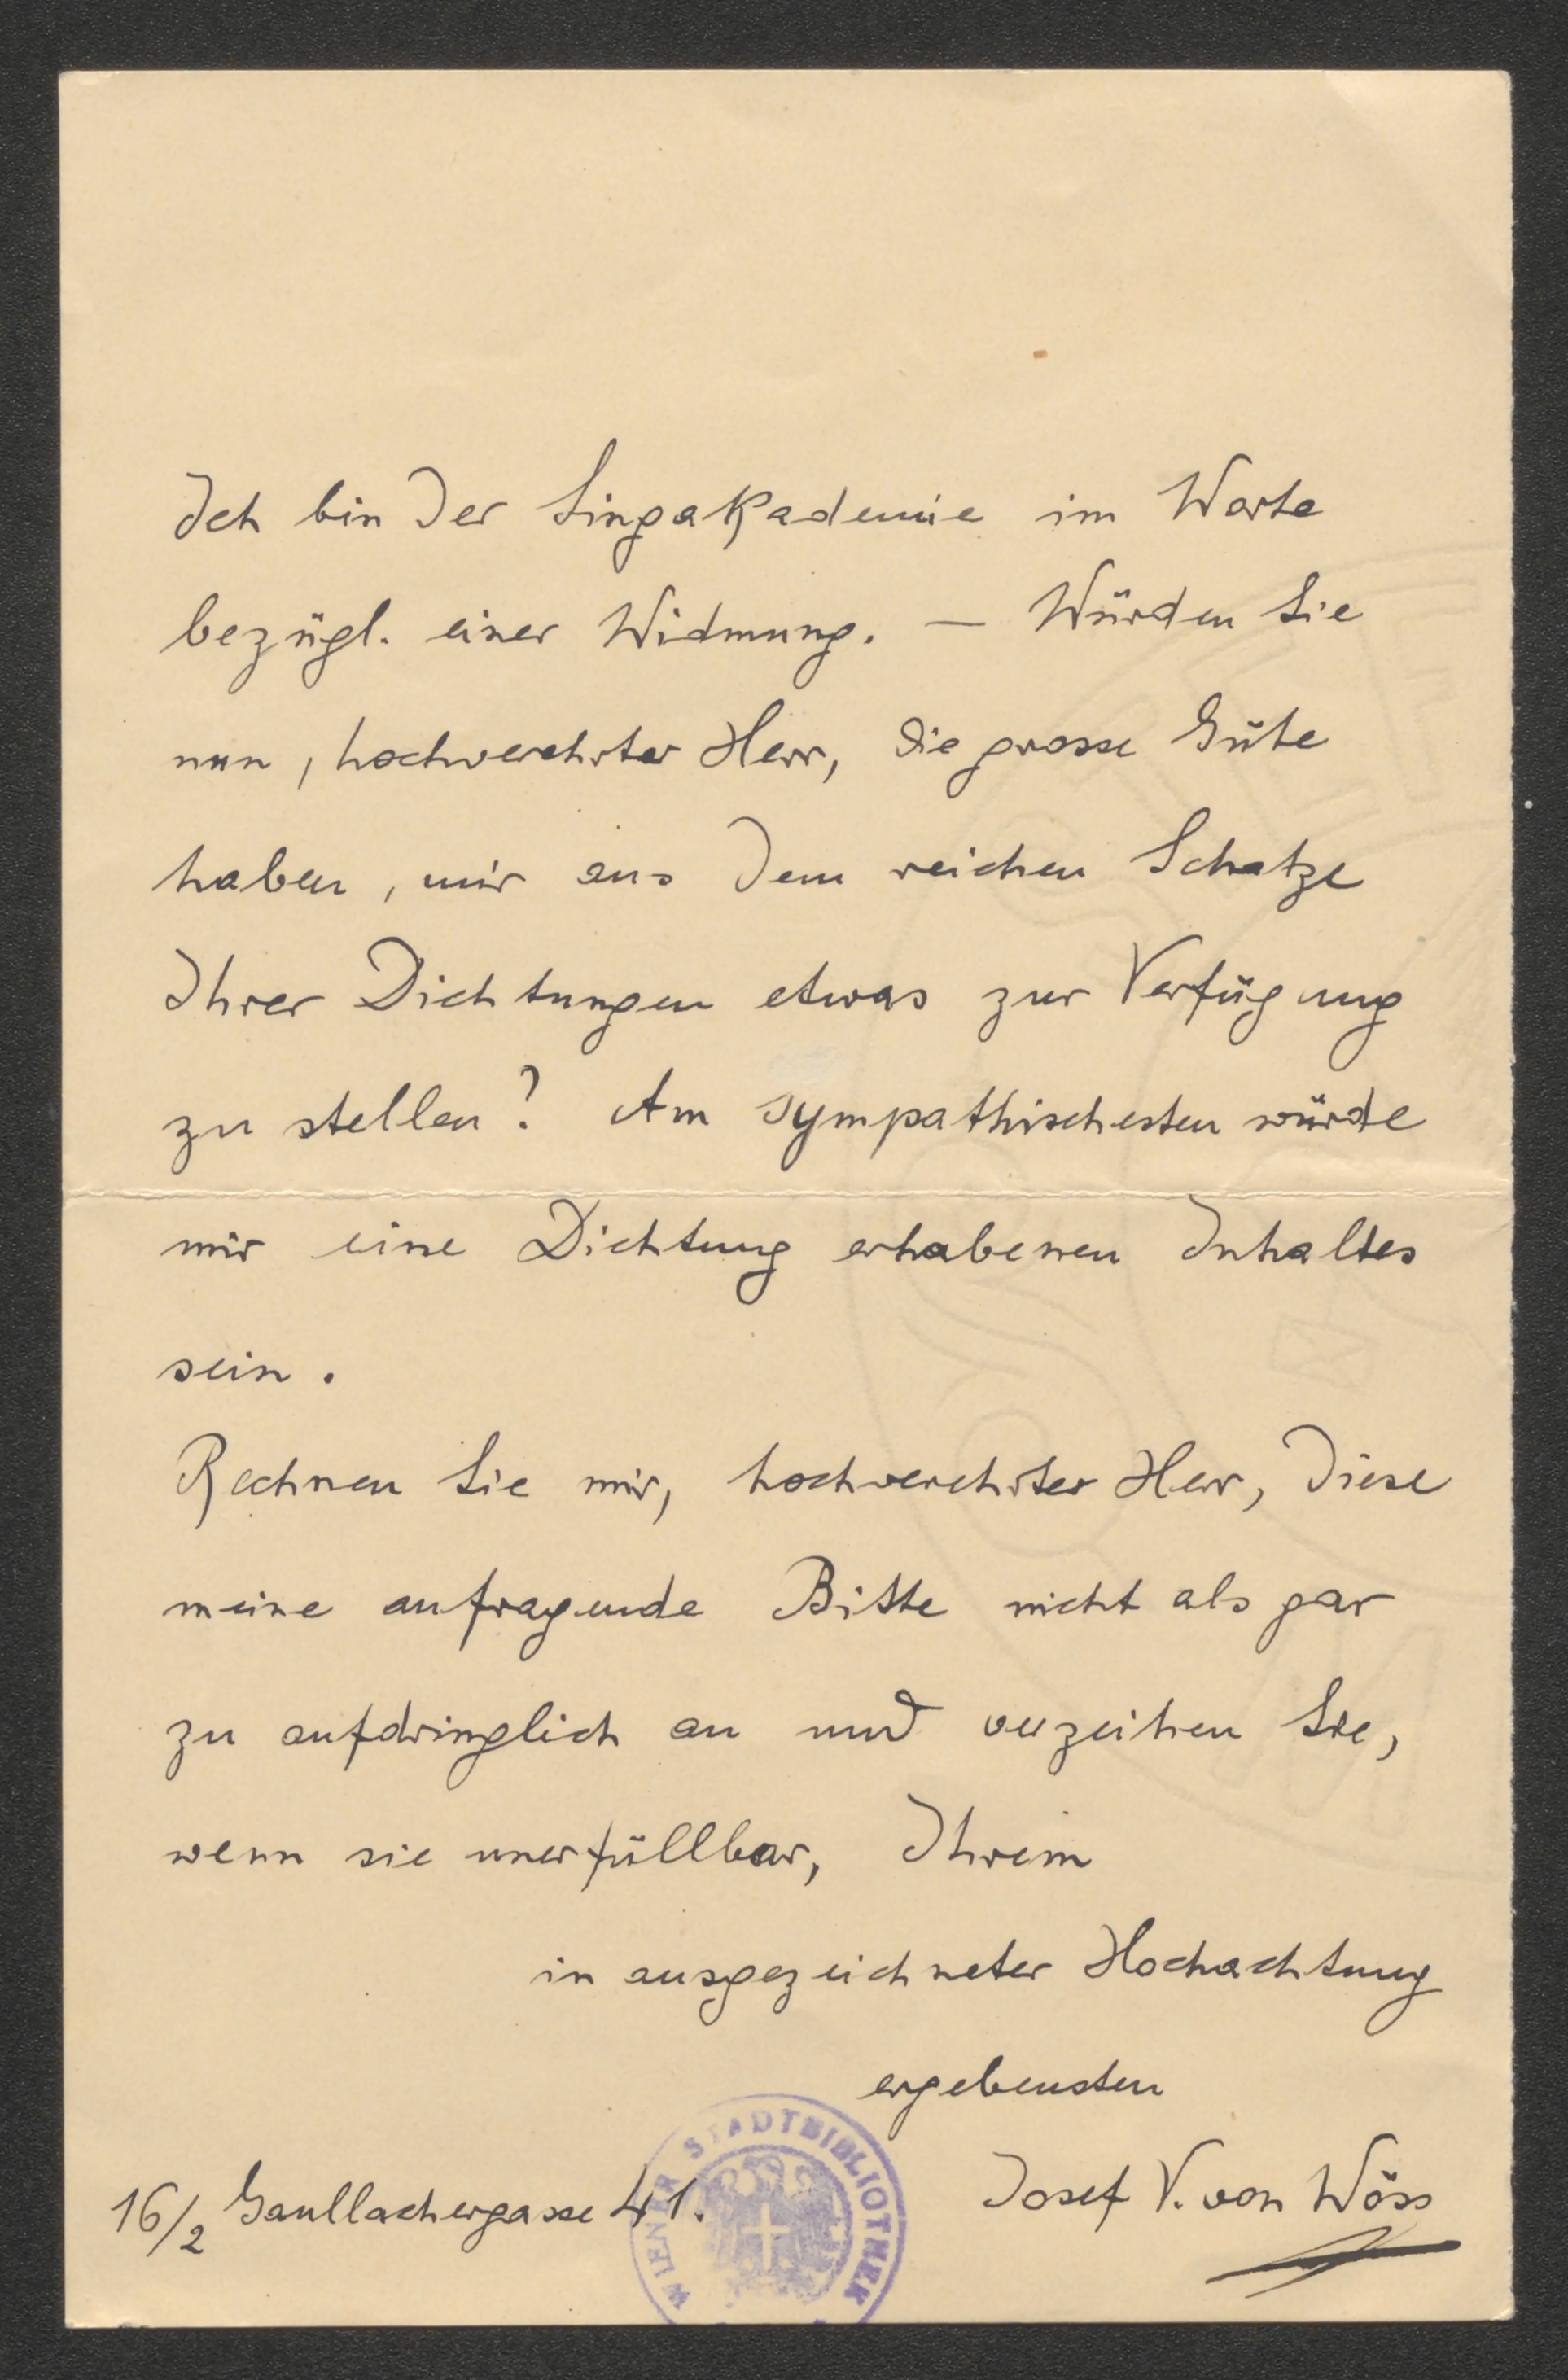 Ich bin der Singakademie im Worte
bezügl. einer Widmung. — Würden Sie
nun, hochverehrter Herr, die grosse Güte
haben, mir aus dem reichen Schatze
Ihrer Dichtungen etwas zur Verfügung
zu stellen? Am sympathischesten würde
mir eine Dichtung erhabenen Inhaltes
sein.
Rechnen Sie mir, hochverehrter Herr, diese
meine anfragende Bitte nicht als gar
zu aufdringlich an und verzeihen Sie,
wenn sie unerfüllbar, Ihrem
in ausgezeichneter Hochachtung
ergebensten
Josef V. von Wöss
16/2 Gaullachergasse 41.
WIENER STADTBIBLIOTHEK